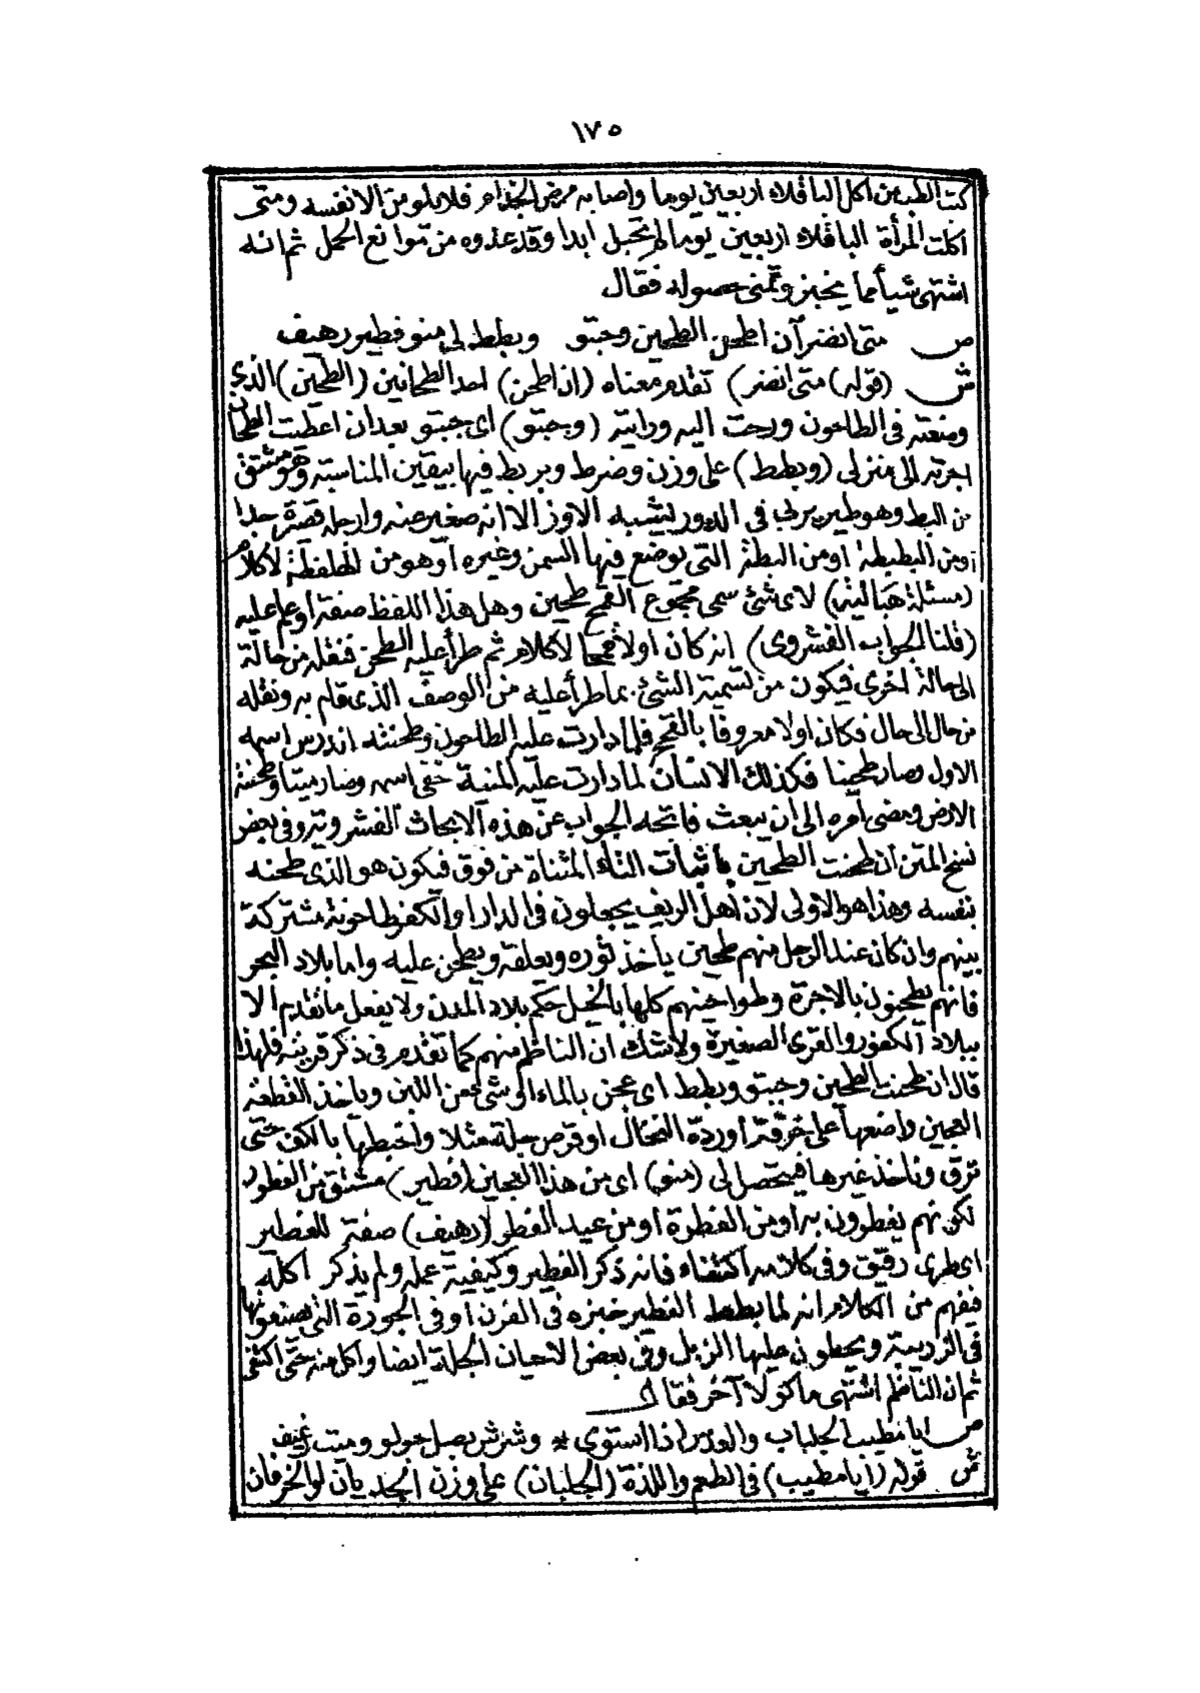 ١٧٥
كتب الطب من اكل الباقلاء اربعين يوما واصابه مرض الجذام فلا يلومن الا نفسه ومتى
اكلت المرأة الباقلاء اربعين يوما لم تحبل ابدا وقد عدوه من موانع الحمل ثم انه
اشتهى شيأ مما يخبز وتمنى حصوله فقال
ص متى انضر آن اطحن الطحين وجبتو وبطط لى منو فطير رهيف
ش (قوله) متى انضر) تقدم معناه (ان اطحن) احد الطحانين (الطحين) الذى
وضعته فى الطاحون ورحت اليه ورأيته (وجبتو) اى جبتو بعد ان اعطيت الطحان
اجرته الى منزلى (وبطط) على وزن وضرط وبربط فيها بيقين المناسبة وهو مشتق
من البط وهو طير يربى فى الدور يشبه الاوز الا انه صغير عنه وارجله قصيرة جدا
او من البطبطة او من البطة التى يوضع فيها السمن وغيره او هو من الخلفطة لا كلام
(مسئلة هبالية) لاى شئ سمى مجموع القمح طحين وهل هذا اللفظ صفة او علم عليه
(قلنا الجواب الفشروى) انه كان اولا قمحا لا كلام ثم طرأ عليه الطحن فنقله من حالة
الى حالة اخرى فيكون من تسمية الشئ بما طرأ عليه من الوصف الذى قام به ونقله
من حال الى حال فكان اولا معروفا بالقمح فلما دارت عليه الطاحون وطحنته اندرس اسمه
الاول وصار طحينا فكذلك الانسان لما دارت عليه المنية خفى اسمه وصار ميتا وطحنته
الارض ومضى امره الى ان يبعث فاتجه الجواب عن هذه الابحاث الفشرويه وفى بعض
نسخ المتن ان طحنت الطحين باثبات التاء المثناة من فوق فيكون هو الذى طحنه
بنفسه وهذا هو الاولى لان اهل الريف يجعلون فى الدار او الكفر طاحونة مشتركة
بينهم وان كان عند الرجل منهم طحين يأخذ ثوره ويعلقه ويطحن عليه واما بلاد البحر
فانهم يطحنون بالاجرة وطواحينهم كلها بالخيل حكم بلاد المدن ولا يفعل ما تقدم الا
ببلاد الكفور والقرى الصغيرة ولا شك ان الناظم منهم كما تقدم فى ذكر قريته فلهذا
قال ان طحنت الطحين وجبتو وبطط اى عجن بالماء او شئ من اللبن ويأخذ القطعة
العجين واضعها على خرقة او ردة النخال او قرص جلة مثلا واخبطها بالكف حتى
ترق وناخذ غيرها فيتحصل لى (منو) اى من هذا العجين (فطير) مشتق من الفطور
لكونهم يفطرون به او من الفطرة او من عيد الفطر (رهيف) صفة للفطير
اى طرى رقيق وفى كلامه اكتفاء فانه ذكر الفطير وكيفية عمله ولم يذكر اكله
فيفهم من الكلام انه لما بطط الفطير خبزه فى الفرن او فى الجورة التى يصنعونها
فى الزريبة ويحطون عليها الزبل وفى بعض الاحيان الجلة ايضا واكل منه حتى اكتفى
ثم ان الناظم اشتهى ماكولا آخر فقال
ص ايا مطيب الجلبان والعدس اذا استوى * وشرش بصل حولو وميت رغيف
ش قوله (ايا مطيب) فى الطعم واللذة (الجلبان) على وزن الجديان او الخرفان